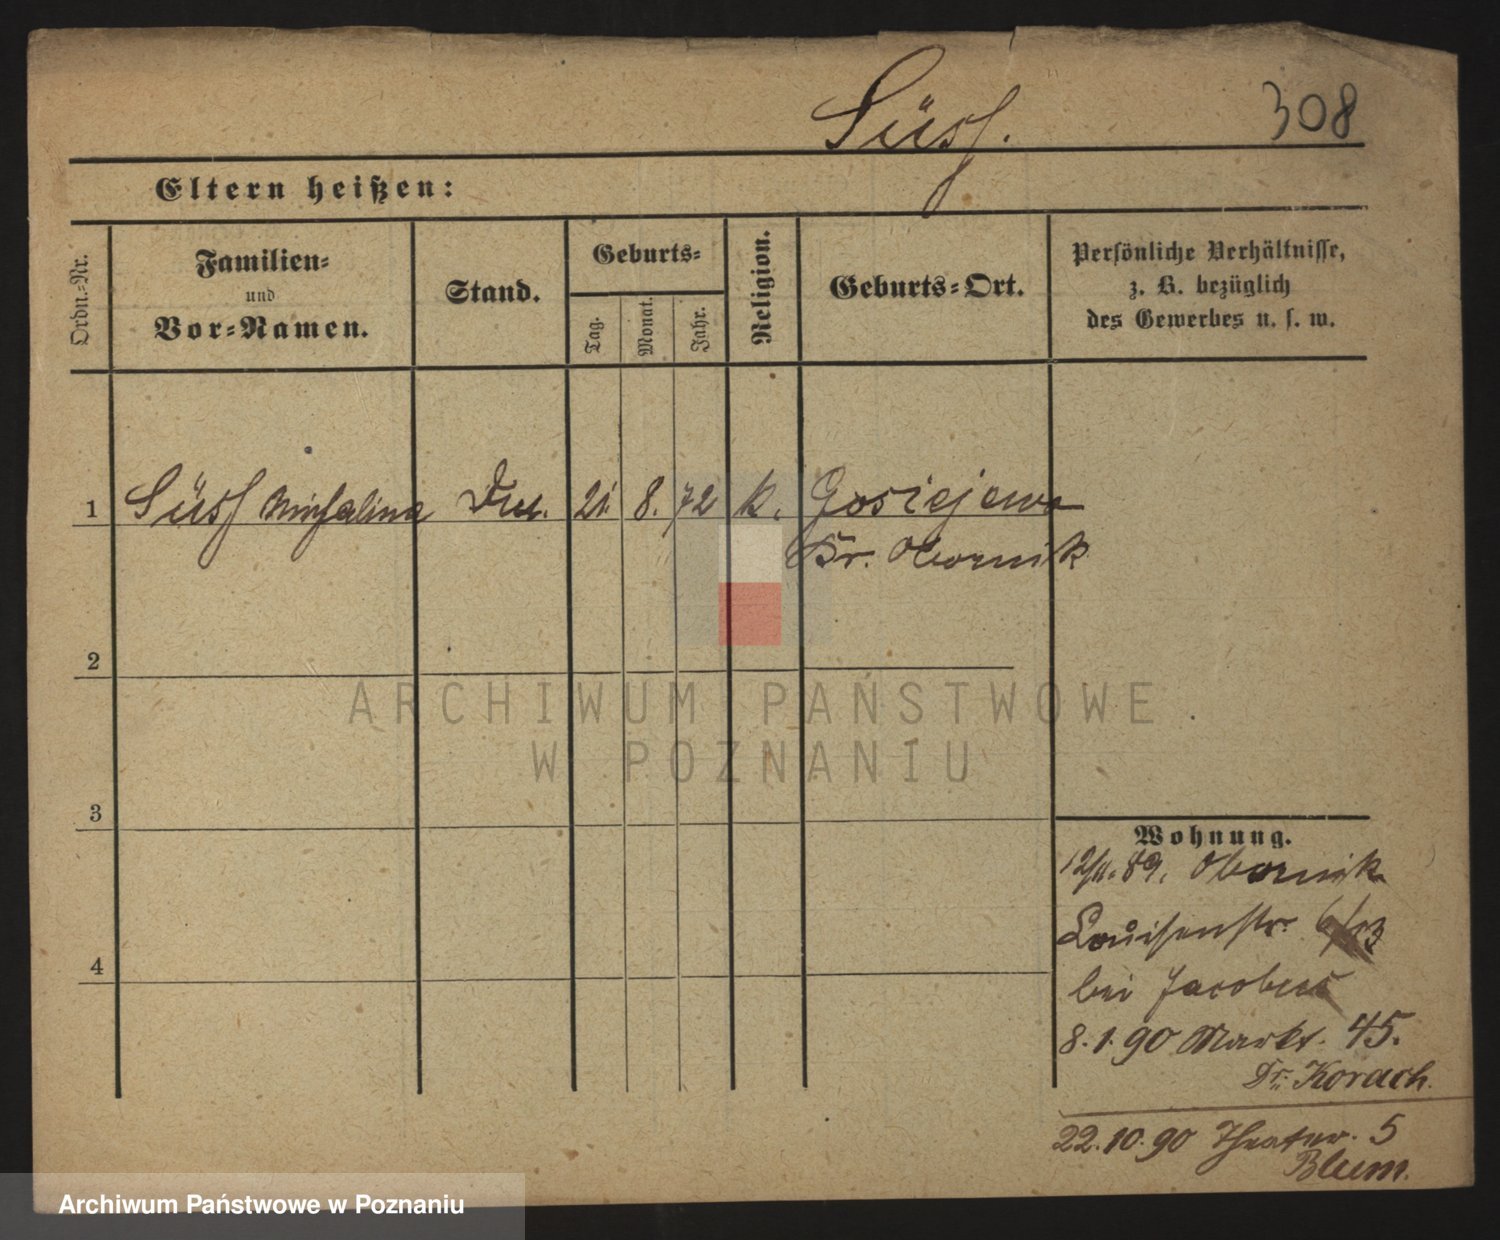 Süss.
308
Eltern heißen:
Ordn.-Nr.
Familien-
und
Vor-Namen.
Stand.
Geburts-
Tag.
Monat.
Jahr.
Religion.
Geburts-Ort.
Persönliche Verhältnisse,
z. B. bezüglich
des Gewerbes u. s. w.
1 Süss Michalina 21. 8. 72 k. Gosciejewo
Kr. Obornik
2
3
4
ARCHIWUM PAŃSTWOWE
W POZNANIU
Wohnung.
12/11. 89. Obornik
Louisenstr.
bei Jacobus
8. 1. 90 Markt. 45.
Dr. Korach.
22. 10. 90 Theater. 5
Blum.
Archiwum Państwowe w Poznaniu